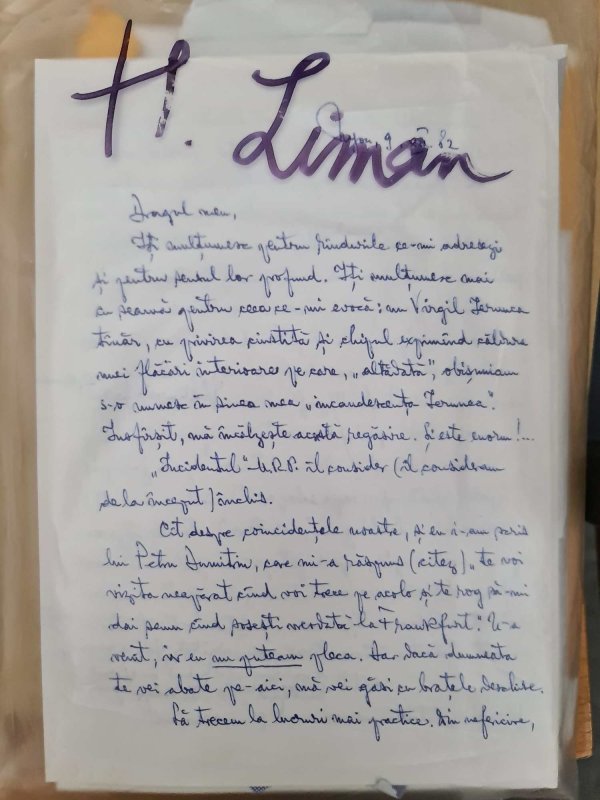 H. Limän
9 VII 82
Dragul meu,
Îți mulțumesc pentru rîndurile ce-mi adresezi
și pentru sensul lor profund. Îți mulțumesc mai
cu seamă pentru ceea ce-mi evocă: un Virgil Ierunca
tînăr, cu privirea cinstită și chipul exprimînd căldura
unei flăcări interioare pe care, „altădată”, obișnuiam
s-o numesc în sinea mea „incandescența Ierunca”.
Însfîrșit, mă încălzește această regăsire. Și este enorm!...
„Incidentul” U.R.P. îl consider (îl consideram
de la început) închis.
Cît despre coincidențele noastre, și eu i-am scris
lui Petru Dumitriu, care mi-a răspuns (citez) „te voi
vizita neapărat cînd voi trece pe acolo și te rog să-mi
dai semn cînd sosești vreodată la Frankfurt.” N-a
venit, iar eu nu puteam pleca. Dar dacă dumneata
te vei abate pe-aici, mă vei găsi cu brațele deschise.
Să trecem la lucruri mai practice. Din nefericire,